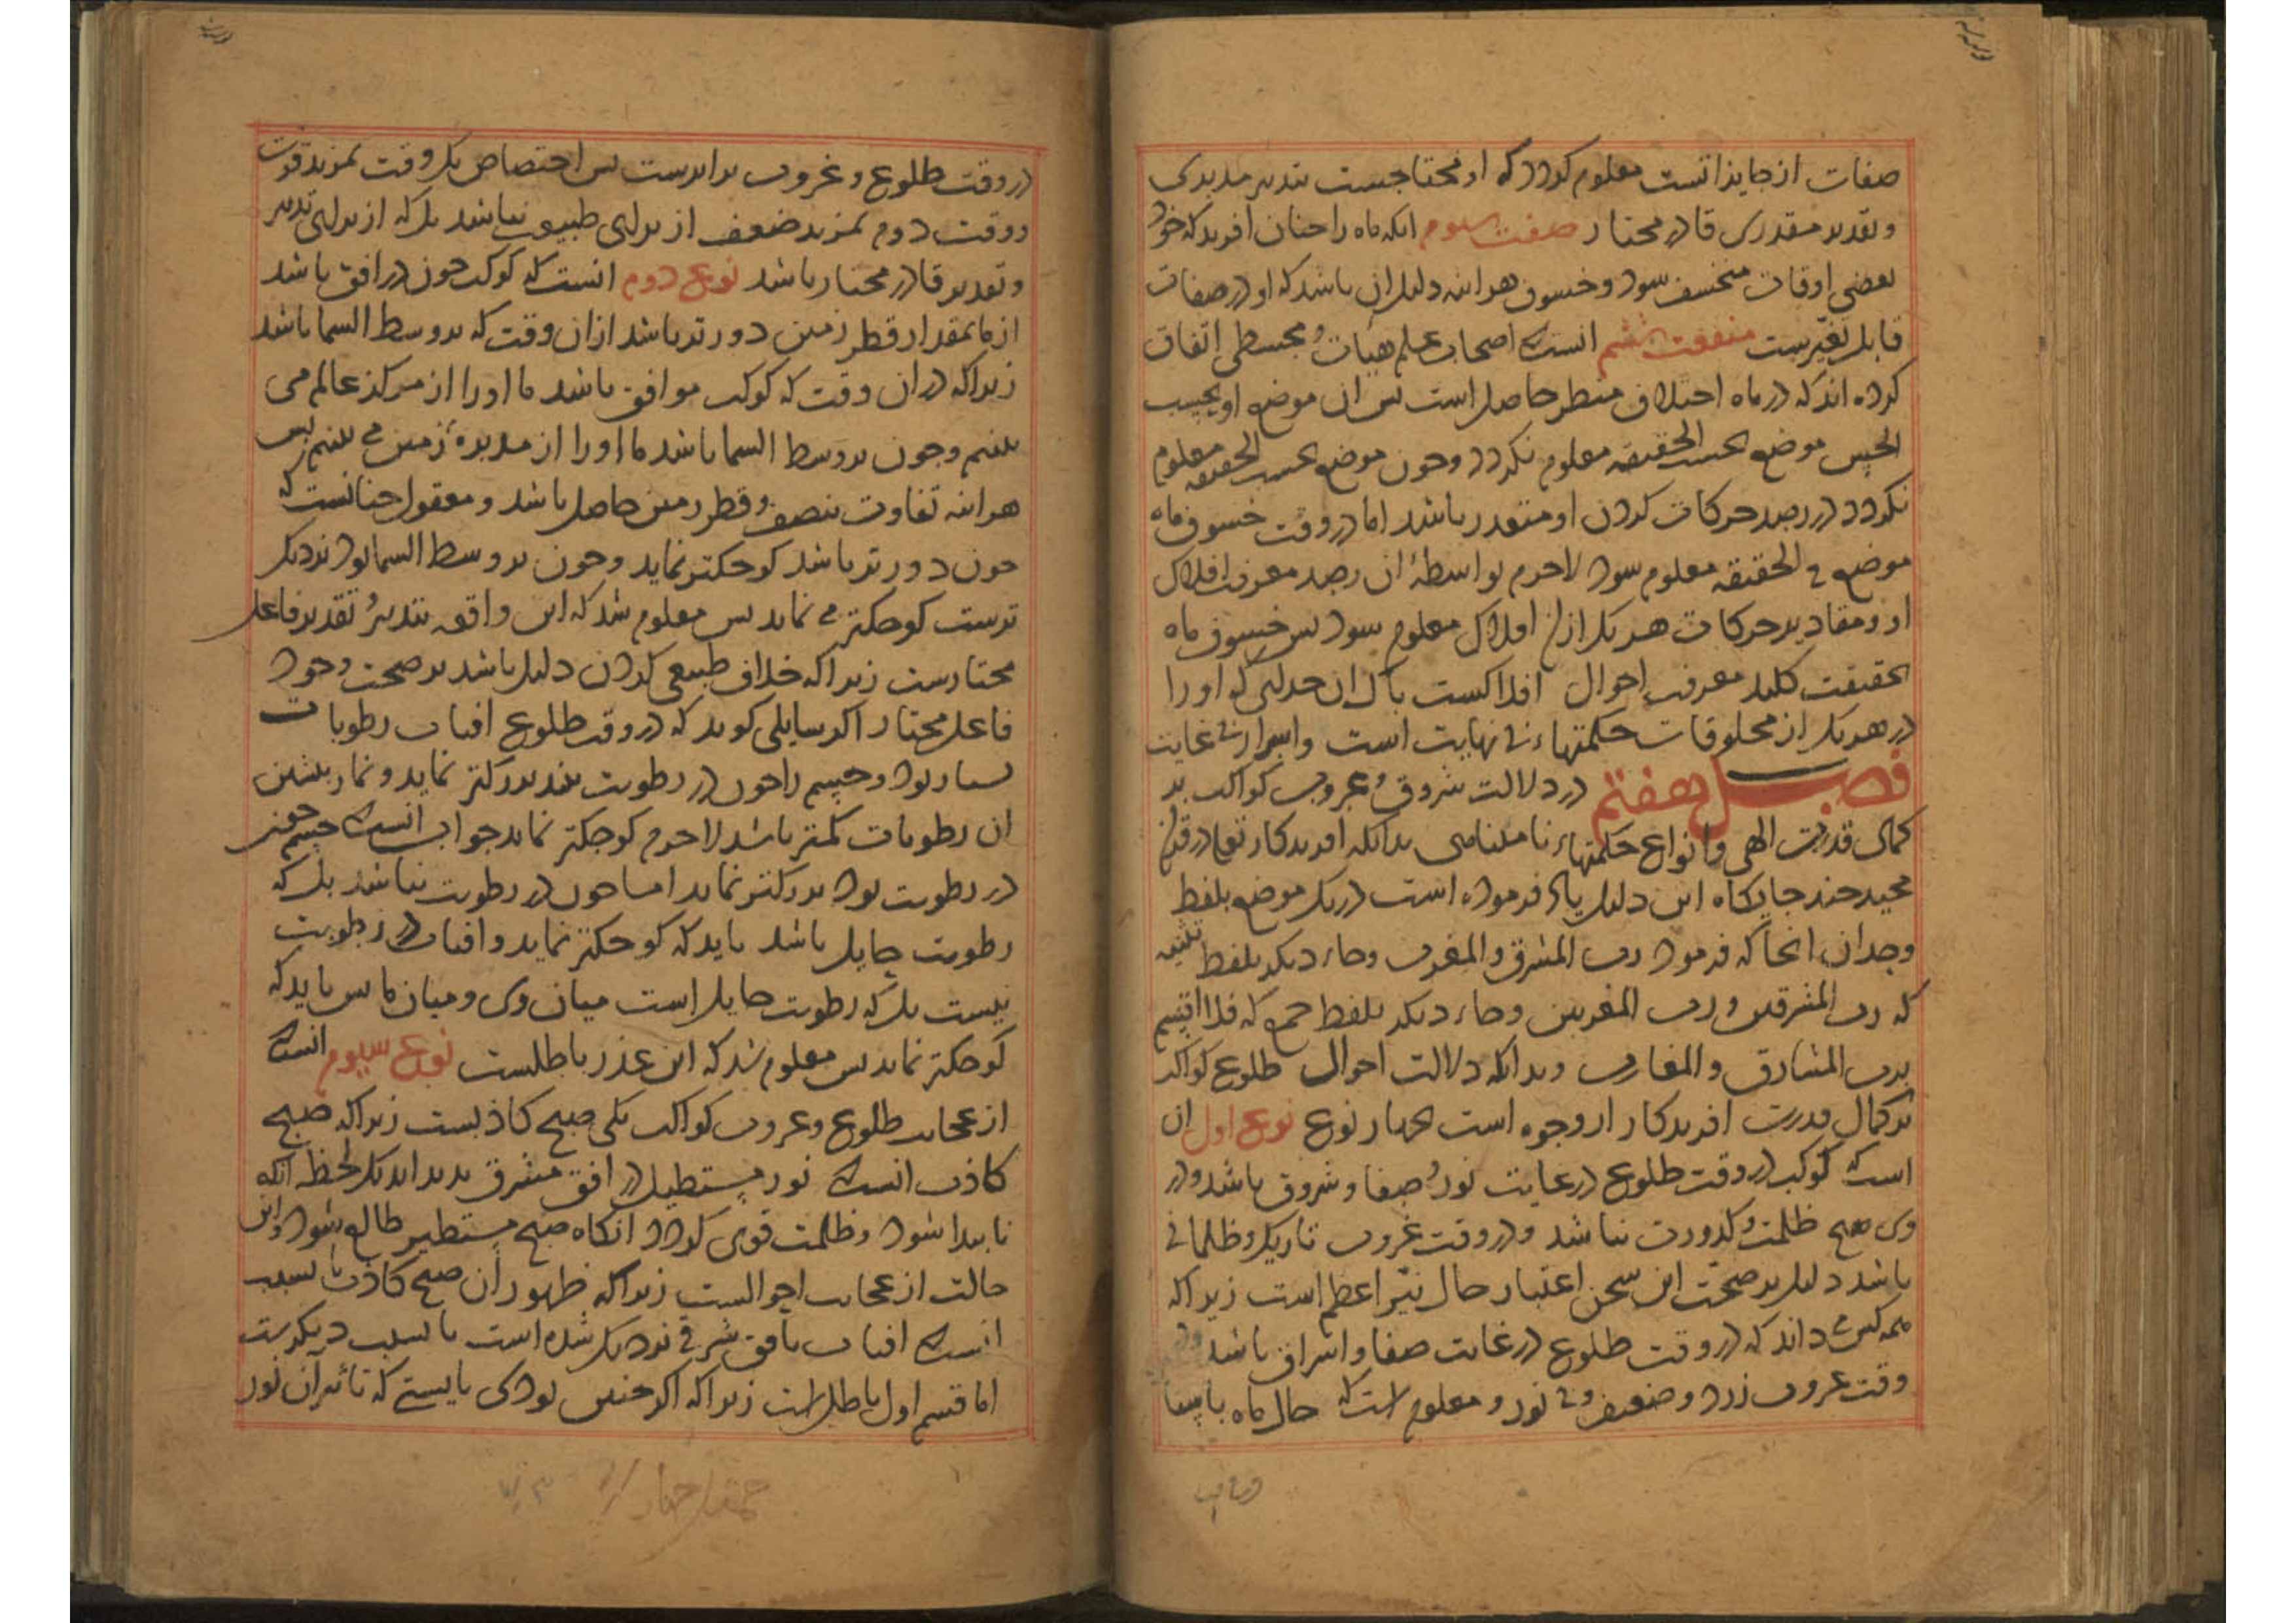 صفات از جایزاتست معلوم کردد که او محتاجست بتدبیر مدبری
و تقدیر مقدری قادر مختار صفت سیوم انکه ماه را چنان افرید که خود
بعضی اوقات منخسف شود و خسوف هراینه دلیل ان باشد که او در صفات
قابل تغیرست منفعت ششم انست که اصحاب علم هیات و مجسطی اتفاق
کرده اند که در ماه اختلاف منظر حاصل است بس ان موضع او بحسب
الحس موضع بحسب الحقیقه معلوم نکردد و چون موضع بحسب الحقیقه معلوم
نکردد در رصد حرکات کردن او متعذر باشد اما در وقت خسوف ماه
موضع فی الحقیقه معلوم شود لاجرم بواسطهٔ ان رصد معرفت افلاک
او و مقادیر حرکات هر یک از ان افلاک معلوم شود بس خسوف ماه
بحقیقت کلید معرفت احوال افلاکست باک ان خدایی که او را
در هر یک از مخلوقات حکمتهاء بی نهایت است و اسرار بی غایت
فصل هفتم در دلالت شروق و غروب کواکب بر
کمال قدرت الهی و انواع حکمتهاء نامتناهی بدانکه افریدکار تعا در قران
مجید چند جایکاه این دلیل یاد فرموده است در یک موضع بلفظ
وحدان انجا که فرمود رب المشرق والمغرب و جاء دیکر بلفظ تثنیه
که رب المشرقین و رب المغربین و جاء دیکر بلفظ جمع که فلا اقسم
برب المشارق و المغارب و بدانکه دلالت احوال طلوع کواکب
بر کمال قدرت افریدکار از وجوه است چهار نوع نوع اول ان
است که کوکب در وقت طلوع در غایت نور و صفا و شروق باشد و در
وی هیچ ظلمت و کدورت نباشد و در وقت غروب تاریک و ظلمانی
باشد دلیل بر صحت این سخن اعتبار حال نیر اعظم است زیراکه
همه کس می داند که در وقت طلوع در غایت صفا و اشراق باشد و در
وقت غروب زرد و ضعیف و بی نور و معلوم است که حال ماه باسما
در وقت طلوع و غروب برابرست بس اختصاص یک وقت بمزید قوت
و وقت دوم بمزید ضعف از برای طبیعی نباشد بل که از برای تدبیر
و تقدیر قادر مختار باشد نوع دوم انست که کوکب چون در افق باشد
از ما بمقدار قطر زمین دورتر باشد از ان وقت که بر وسط السما باشد
زیراکه در ان وقت که کوکب موافق باشد ما او را از مرکز عالم می
بینیم و چون بر وسط السما باشد ما او را از مدیرهٔ زمین می بینیم بس
هراینه تفاوت بنصف و قطر زمین حاصل باشد و معقول چنانست که
چون دورتر باشد کوچکتر نماید و چون بر وسط السما بود نزدیک
ترست کوچکتر می نماید بس معلوم شد که این واقعه بتدبیر و تقدیر فاعل
مختارست زیراکه خلاف طبیعی کردن دلیل باشد بر صحت وجود
فاعل مختار اکر سایلی کوید که در وقت طلوع افتاب رطوبات
بسیار بود و جسم را چون در رطوبت بیند بزرکتر نماید و نماز بیشین
ان رطوبات کمتر باشد لاجرم کوچکتر نماید جواب انست که جسم چون
در رطوبت بود بزرکتر نماید اما چون در رطوبت نباشد بل که
رطوبت حایل باشد باید که کوچکتر نماید و افتاب در رطوبت
نیست بل که رطوبت حایل است میان وی و میان ما بس باید که
کوچکتر نماید بس معلوم شد که این عذر باطلست نوع سیوم انست که
از عجایب طلوع و غروب کواکب یکی صبح کاذبست زیراکه صبح
کاذب انست که نور مستطیل در افق مشرق بدید اید یک لحظه انکه
نابیدا شود و ظلمت قوی کردد انکاه صبح مستطیر طالع شود و این
حالت از عجایب احوالست زیراکه ظهور ان صبح کاذب یا بسبب
انست که افتاب بافق شرقی نزدیک شده است یا بسبب دیکرست
اما قسم اول باطل است زیراکه اکر چنین بودی بایستی که تاثیر ان نور